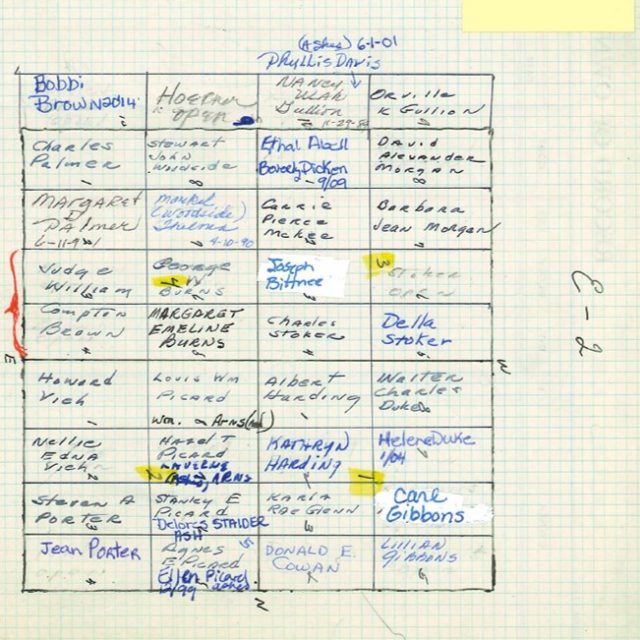 (Ashes) 6-1-01
Phyllis Davis
Bobbi
Brown 2014
OPEN
NANCY
Gullion
11-29-
Orville
K Gullion
Charles
Palmer
Stewart
John
Woodside
Ethal Abell
Beverly Dicken
9/09
David
Alexander
Morgan
MARGARET
D
PALMER
6-11-91
(Woodside)
4-10-90
Carrie
Pierce
McKee
Barbara
Jean Morgan
Judge
William
George
W
BURNS
4
Joseph
Bittner
3
Stoker
OPEN
Compton
Brown
MARGARET
EMELINE
BURNS
Charles
Stoker
Della
Stoker
E
W
E-2
Howard
Vich
Louis Wm
Picard
Wm. Arns
Albert
Harding
Walter
Charles
Duke
Nellie
Edna
Vich
Hazel T
Picard
LAVERNE
ARNS
2
KATHRYN
HARDING
Helene Duke
1/04
1
Steven A
PORTER
STANLEY E
Picard
Delores STAIDER
ASH
Karla
Rae Glenn
Carl
Gibbons
Jean Porter
Agnes
E Picard
Ellen Picard
12/99 ashes
DONALD E.
COWAN
LILLIAN
GIBBONS